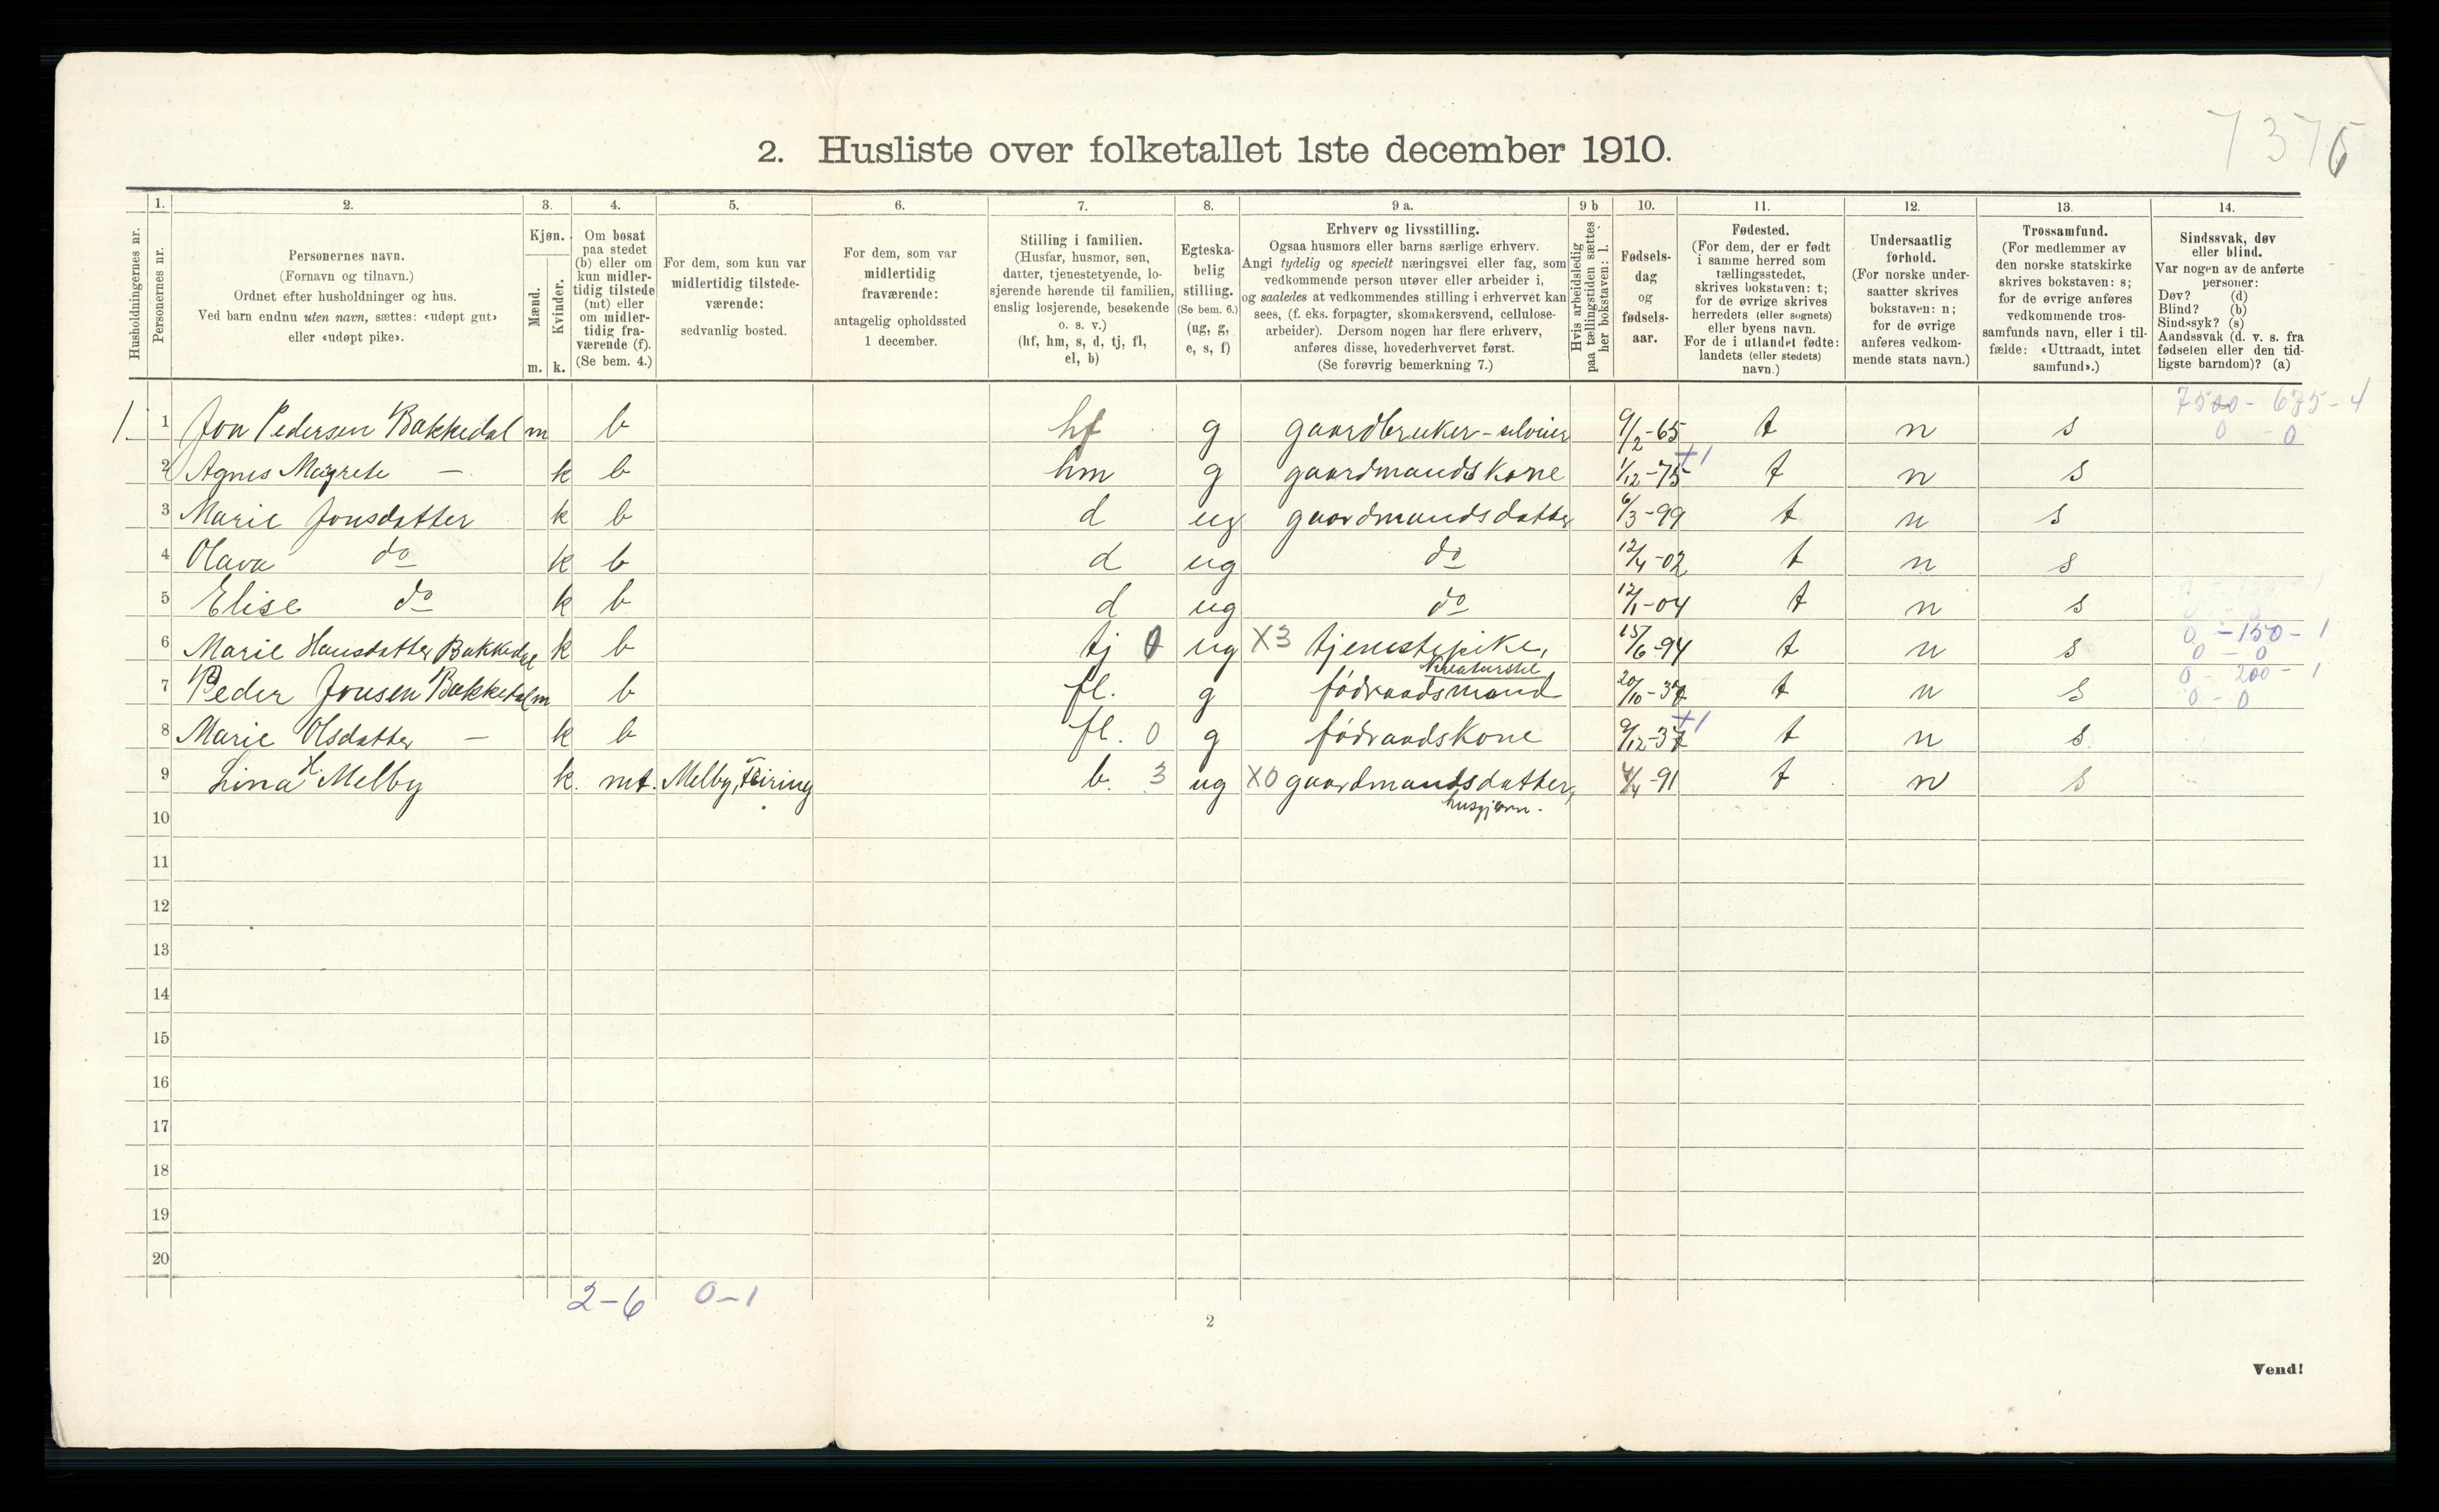 7376
2. Husliste over folketallet 1ste december 1910.
Husholdningernes nr.
1. Personernes nr.
2. Personernes navn.
(Fornavn og tilnavn.)
Ordnet efter husholdninger og hus.
Ved barn endnu uten navn, sættes: «udøpt gut»
eller «udøpt pike».
3. Kjøn.
Mænd. m.
Kvinder. k.
4. Om bosat
paa stedet
(b) eller om
kun midler-
tidig tilstede
(mt) eller
om midler-
tidig fra-
værende (f).
(Se bem. 4.)
5. For dem, som kun var
midlertidig tilstede-
værende:
sedvanlig bosted.
6. For dem, som var
midlertidig
fraværende:
antagelig opholdssted
1 december.
7. Stilling i familien.
(Husfar, husmor, søn,
datter, tjenestetyende, lo-
sjerende hørende til familien,
enslig losjerende, besøkende
o. s. v.)
(hf, hm, s, d, tj, fl,
el, b)
8. Egteska-
belig
stilling.
(Se bem. 6.)
(ug, g,
e, s, f)
9 a. Erhverv og livsstilling.
Ogsaa husmors eller barns særlige erhverv.
Angi tydelig og specielt næringsvei eller fag, som
vedkommende person utøver eller arbeider i,
og saaledes at vedkommendes stilling i erhvervet kan
sees, (f. eks. forpagter, skomakersvend, cellulose-
arbeider). Dersom nogen har flere erhverv,
anføres disse, hovederhvervet først.
(Se forøvrig bemerkning 7.)
9 b Hvis arbeidsledig
paa tællingstiden sættes
her bokstaven: l.
10. Fødsels-
dag
og
fødsels-
aar.
11. Fødested.
(For dem, der er født
i samme herred som
tællingsstedet,
skrives bokstaven: t;
for de øvrige skrives
herredets (eller sognets)
eller byens navn.
For de i utlandet fødte:
landets (eller stedets)
navn.)
12. Undersaatlig
forhold.
(For norske under-
saatter skrives
bokstaven: n;
for de øvrige
anføres vedkom-
mende stats navn.)
13. Trossamfund.
(For medlemmer av
den norske statskirke
skrives bokstaven: s;
for de øvrige anføres
vedkommende tros-
samfunds navn, eller i til-
fælde: «Uttraadt, intet
samfund».)
14. Sindssvak, døv
eller blind.
Var nogen av de anførte
personer:
Døv? (d)
Blind? (b)
Sindssyk? (s)
Aandssvak (d. v. s. fra
fødselen eller den tid-
ligste barndom)? (a)
7500 - 675 - 4
1. 1 Jon Pedersen Bakkedal m b hf g gaardbruker - selveier 9/2-65 t n s 0 - 0
2 Agnes Margrete — k b hm g gaardmandskone 1/12-75 +1 t n s
3 Marie Jonsdatter k b d ug gaardmandsdatter 6/3-99 t n s
4 Olava do k b d ug do 12/4-02 t n s
5 Elise do k b d ug do 12/1-04 t n s
6 Marie Hansdatter Bakkedal k b tj 0 ug X3 tjenestepike, 15/6-94 t n s 0 - 150 - 1
kreaturstel 0 - 0
7 Peder Jonsen Bakkedal m b fl. g födraadsmand t n s 0 - 200 - 1
0 - 0
8 Marie Olsdatter — k b fl. 0 g födraadskone +1 t n s
9 Lina H. Melby k. mt. Melby, Feiring b. 3 ug X0 gaardmandsdatter, 4/4-91 t n s
husgjern.
10
11
12
13
14
15
16
17
18
19
20
2-6 0-1
2
Vend!